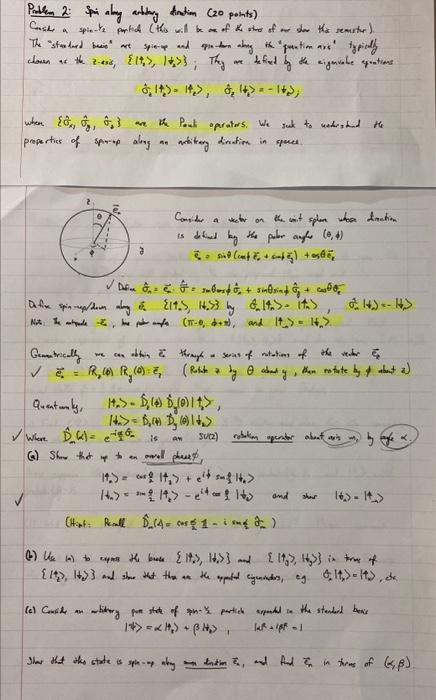 Problem 2: Spin along arbitrary direction (20 points)
Consider a spin-1/2 particle (this will be one of the stars of our show this semester).
The "standard basis" are spin-up and spin-down along the "quantization axis" typically
chosen as the z-axis, {|↑z>, |↓z>}; They are defined by the eigenvalue equations
σ̂z|↑z> = |↑z>, σ̂z|↓z> = -|↓z>,
where {σ̂x, σ̂y, σ̂z} are the Pauli operators. We seek to understand the
properties of spin-up along an arbitrary direction in space.
z
e⃗n
θ
φ
y
Consider a vector on the unit sphere whose direction
is defined by the polar angles (θ, φ)
e⃗n = sinθ (cosφ e⃗x + sinφ e⃗y) + cosθ e⃗z
✓ Define σ̂n = e⃗n · σ⃗ = sinθ cosφ σ̂x + sinθ sinφ σ̂y + cosθ σ̂z
Define spin-up/down along e⃗n {|↑n>, |↓n>} by σ̂n|↑n> = |↑n>, σ̂n|↓n> = -|↓n>
Note: The antipode -e⃗n has polar angles (π-θ, φ+π), and |↑-n> = |↓n>.
Geometrically we can obtain e⃗n through a series of rotations of the vector e⃗z
✓ e⃗n = Rz(φ) Ry(θ) · e⃗z (Rotate by θ about y, then rotate by φ about z)
Quantumly, |↑n> = D̂z(φ) D̂y(θ)|↑z>,
|↓n> = D̂z(φ) D̂y(θ)|↓z>
✓ Where D̂m(α) = e^{-i α/2 σ̂m} is an SU(2) rotation operator about axis m, by angle α.
(a) Show that up to an overall phase,
|↑n> = cos θ/2 |↑z> + e^{iφ} sin θ/2 |↓z>
✓ |↓n> = sin θ/2 |↑z> - e^{iφ} cos θ/2 |↓z> and show |↓n> = |↑-n>
(Hint: Recall D̂m(α) = cos α/2 1̂ - i sin α/2 σ̂m)
(b) Use (a) to express the bases {|↑x>, |↓x>} and {|↑y>, |↓y>} in terms of
{|↑z>, |↓z>} and show that these are the expected eigenvectors, e.g. σ̂x|↑x> = |↑x>, etc
(c) Consider an arbitrary pure state of spin-1/2 particle expanded in the standard basis
|ψ> = α|↑z> + β|↓z>, |α|² + |β|² = 1
Show that this state is spin-up along some direction e⃗n, and find e⃗n in terms of (α, β).